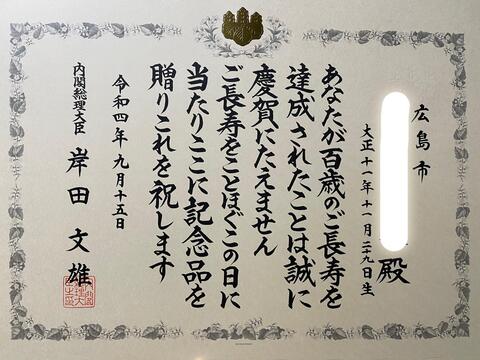 広島市
殿
大正十一年十一月二十九日生
あなたが百歳のご長寿を
達成されたことは誠に
慶賀にたえません
ご長寿をことほぐこの日に
当たりここに記念品を
贈りこれを祝します
令和四年九月十五日
内閣総理大臣 岸田文雄